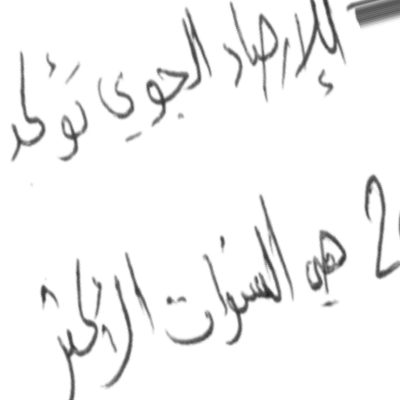 للإرصاد الجوي تؤكد
2 هي السنوات الأكثر